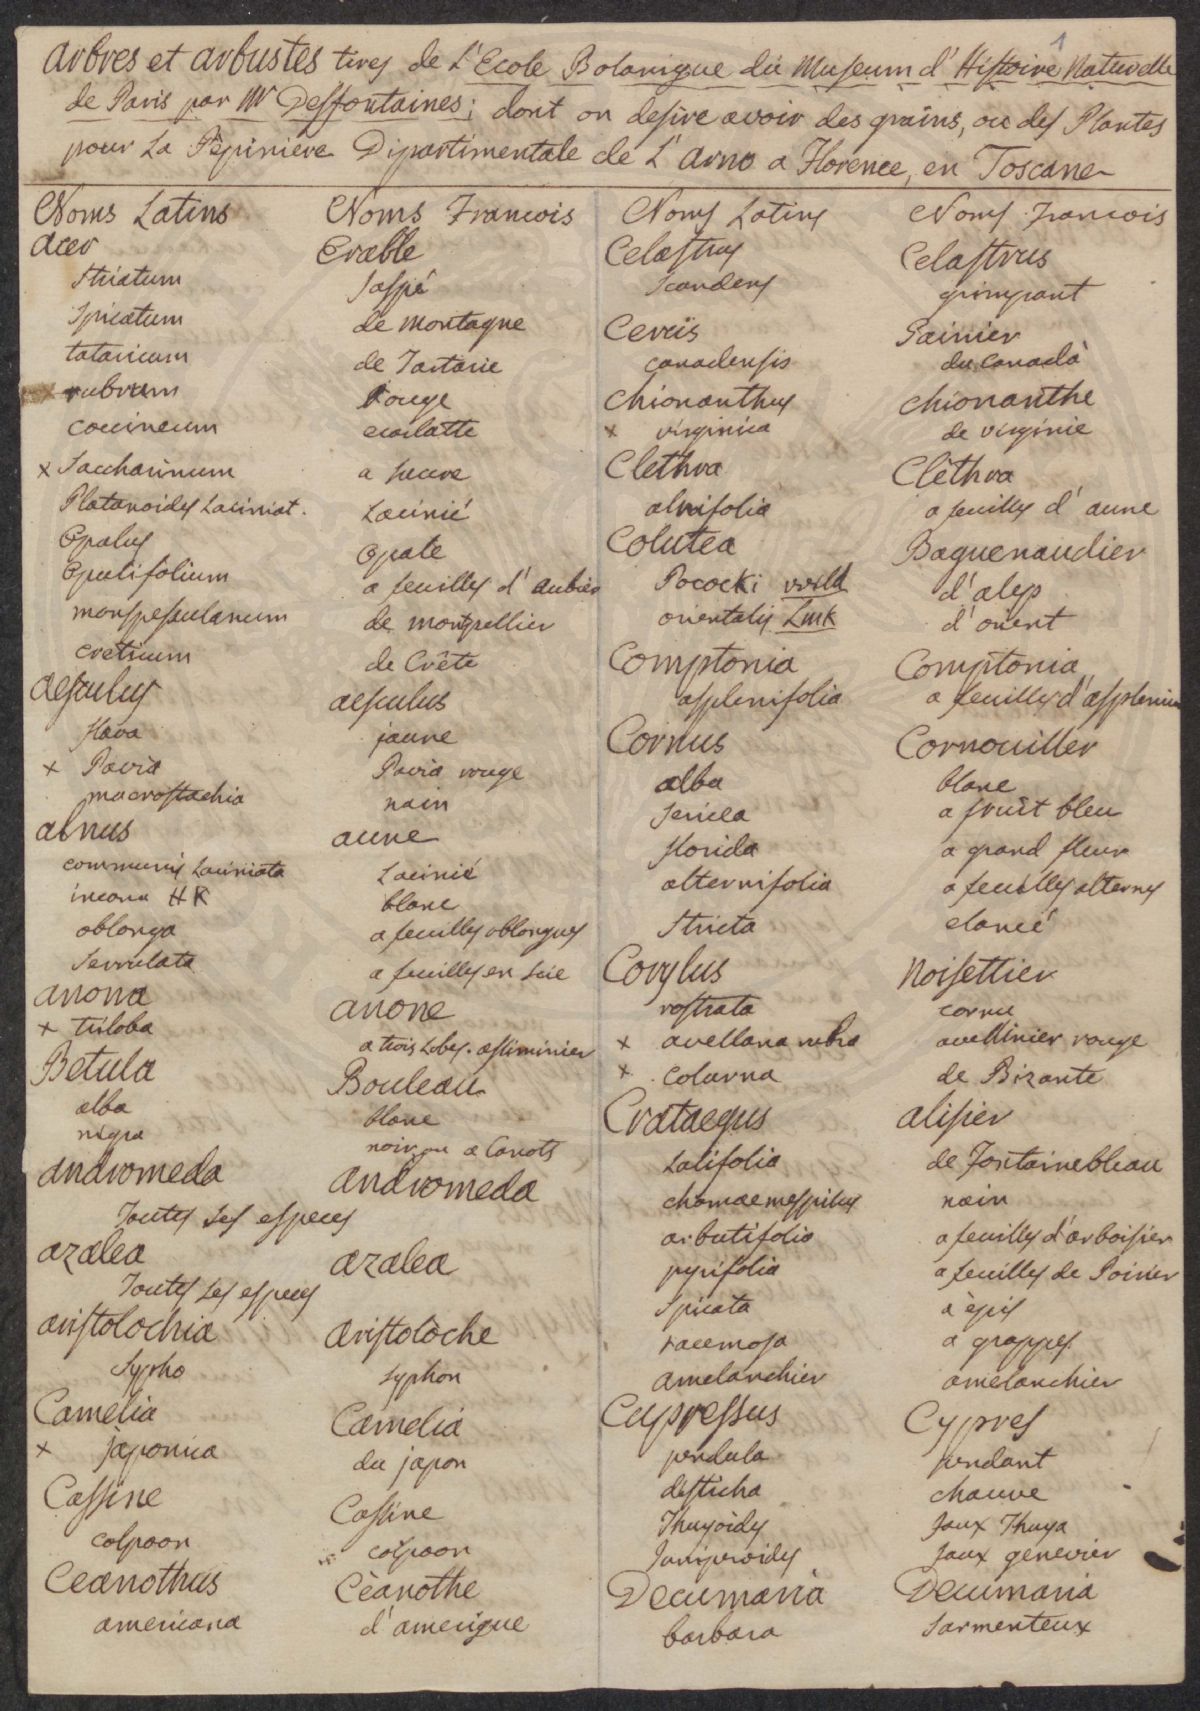 Arbres et arbustes tires de L'Ecole Botanique du Museum d'Histoire Naturelle
de Paris par Mr Desfontaines; dont on desire avoir des grains, ou des Plantes
pour La Pépiniere Dipartimentale de L'Arno a Florence, en Toscane
1
Noms Latins Noms Francois
acer Erable
Striatum Jaspé
Spicatum de montagne
tataricum de Tartarie
x rubrum Rouge
coccineum ecarlatte
x Saccharinum a sucre
Platanoides Laciniat. Lacinié
Opalus Opale
Opulifolium a feuilles d'aubier
monspessulanum de montpellier
creticum de Crête
aesculus aesculus
flava jaune
x Pavia Pavia rouge
macrostachia nain
alnus aune
communis Laciniata Lacinié
incana HK blanc
oblonga a feuilles oblongues
Serrulata a feuilles en Scie
anona anone
x triloba a trois Lobes. assiminier
Betula Bouleau
alba blanc
nigra noir ou a Canots
andromeda andromeda
Toutes Les especes
azalea azalea
Toutes Les especes
aristolochia aristoloche
Sypho Syphon
Camelia Camelia
x japonica du japon
Cassine Cassine
colpoon colpoon
Ceanothus Cèanothe
americana d'amerique
Noms Latins Noms Francois
Celastrus Celastrus
Scandens grimpant
Cercis Gainier
canadensis du Canadà
chionanthus chionanthe
x virginica de virginie
Clethra Clêthra
alnifolia a feuilles d'aune
Colutea Baguenaudier
Pococki willd d'alep
orientalis Lmk d'orient
Comptonia Comptonia
asplenifolia a feuilles d'asplenium
Cornus Cornouiller
alba blanc
Sericea a fruit bleu
florida a grand fleur
alternifolia a feuilles alternes
Stricta elancé
Corylus Noisettier
rostrata cornu
x avellana rubra avellinier rouge
x colurna de Bizante
Crataegus alisier
Latifolia de Fontainebleau
chamaemespilus nain
arbutifolia a feuilles d'arboisier
pyrifolia a feuilles de Poirier
Spicata a èpis
racemosa a grappes
amelanchier amelanchier
Cupressus Cypres
pendula pendant
disticha chauve
Thuyoides faux Thuya
Juniperoides faux genevier
Decumaria Decumaria
barbara Sarmenteux